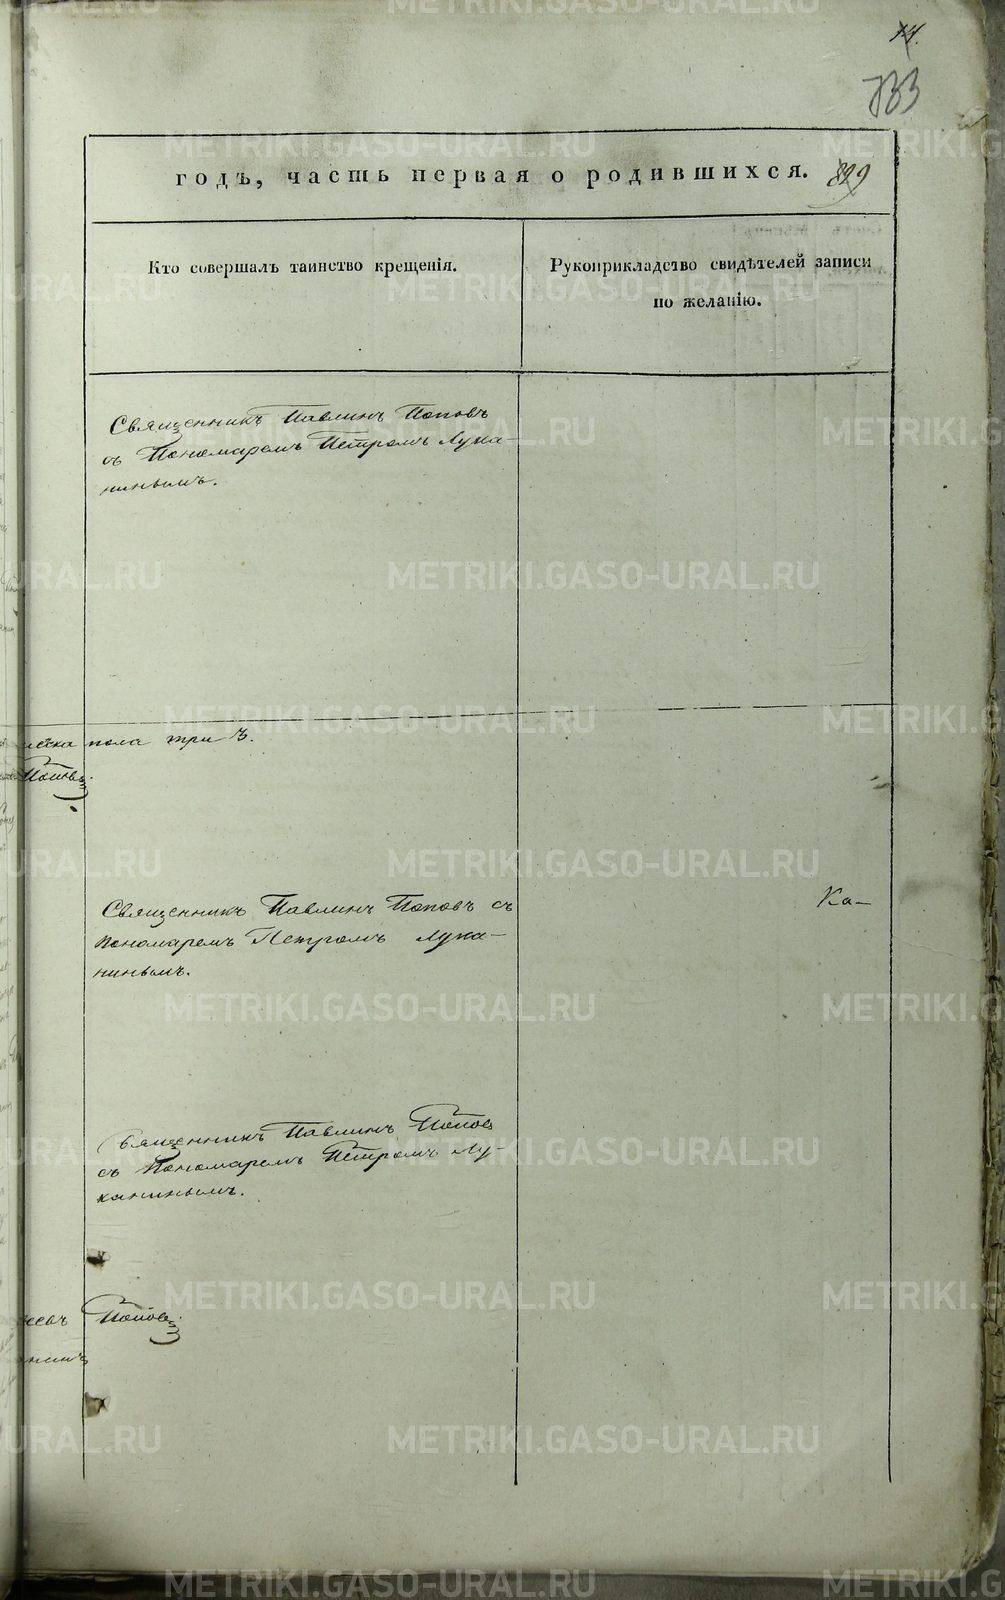 14.
733
годъ, часть первая о родившихся. 829
Кто совершалъ таинство крещенія.
Рукоприкладство свидѣтелей записи
по желанію.
Священникъ Павлинъ Поповъ
съ Пономаремъ Петромъ Лука-
нинымъ.
пола три 3.
Поповъ.
Священникъ Павлинъ Поповъ съ
Пономаремъ Петромъ Лука-
нинымъ.
Ка-
Священникъ Павлинъ Поповъ
съ Пономаремъ Петромъ Лу-
канинымъ.
Поповъ.
METRIKI.GASO-URAL.RU